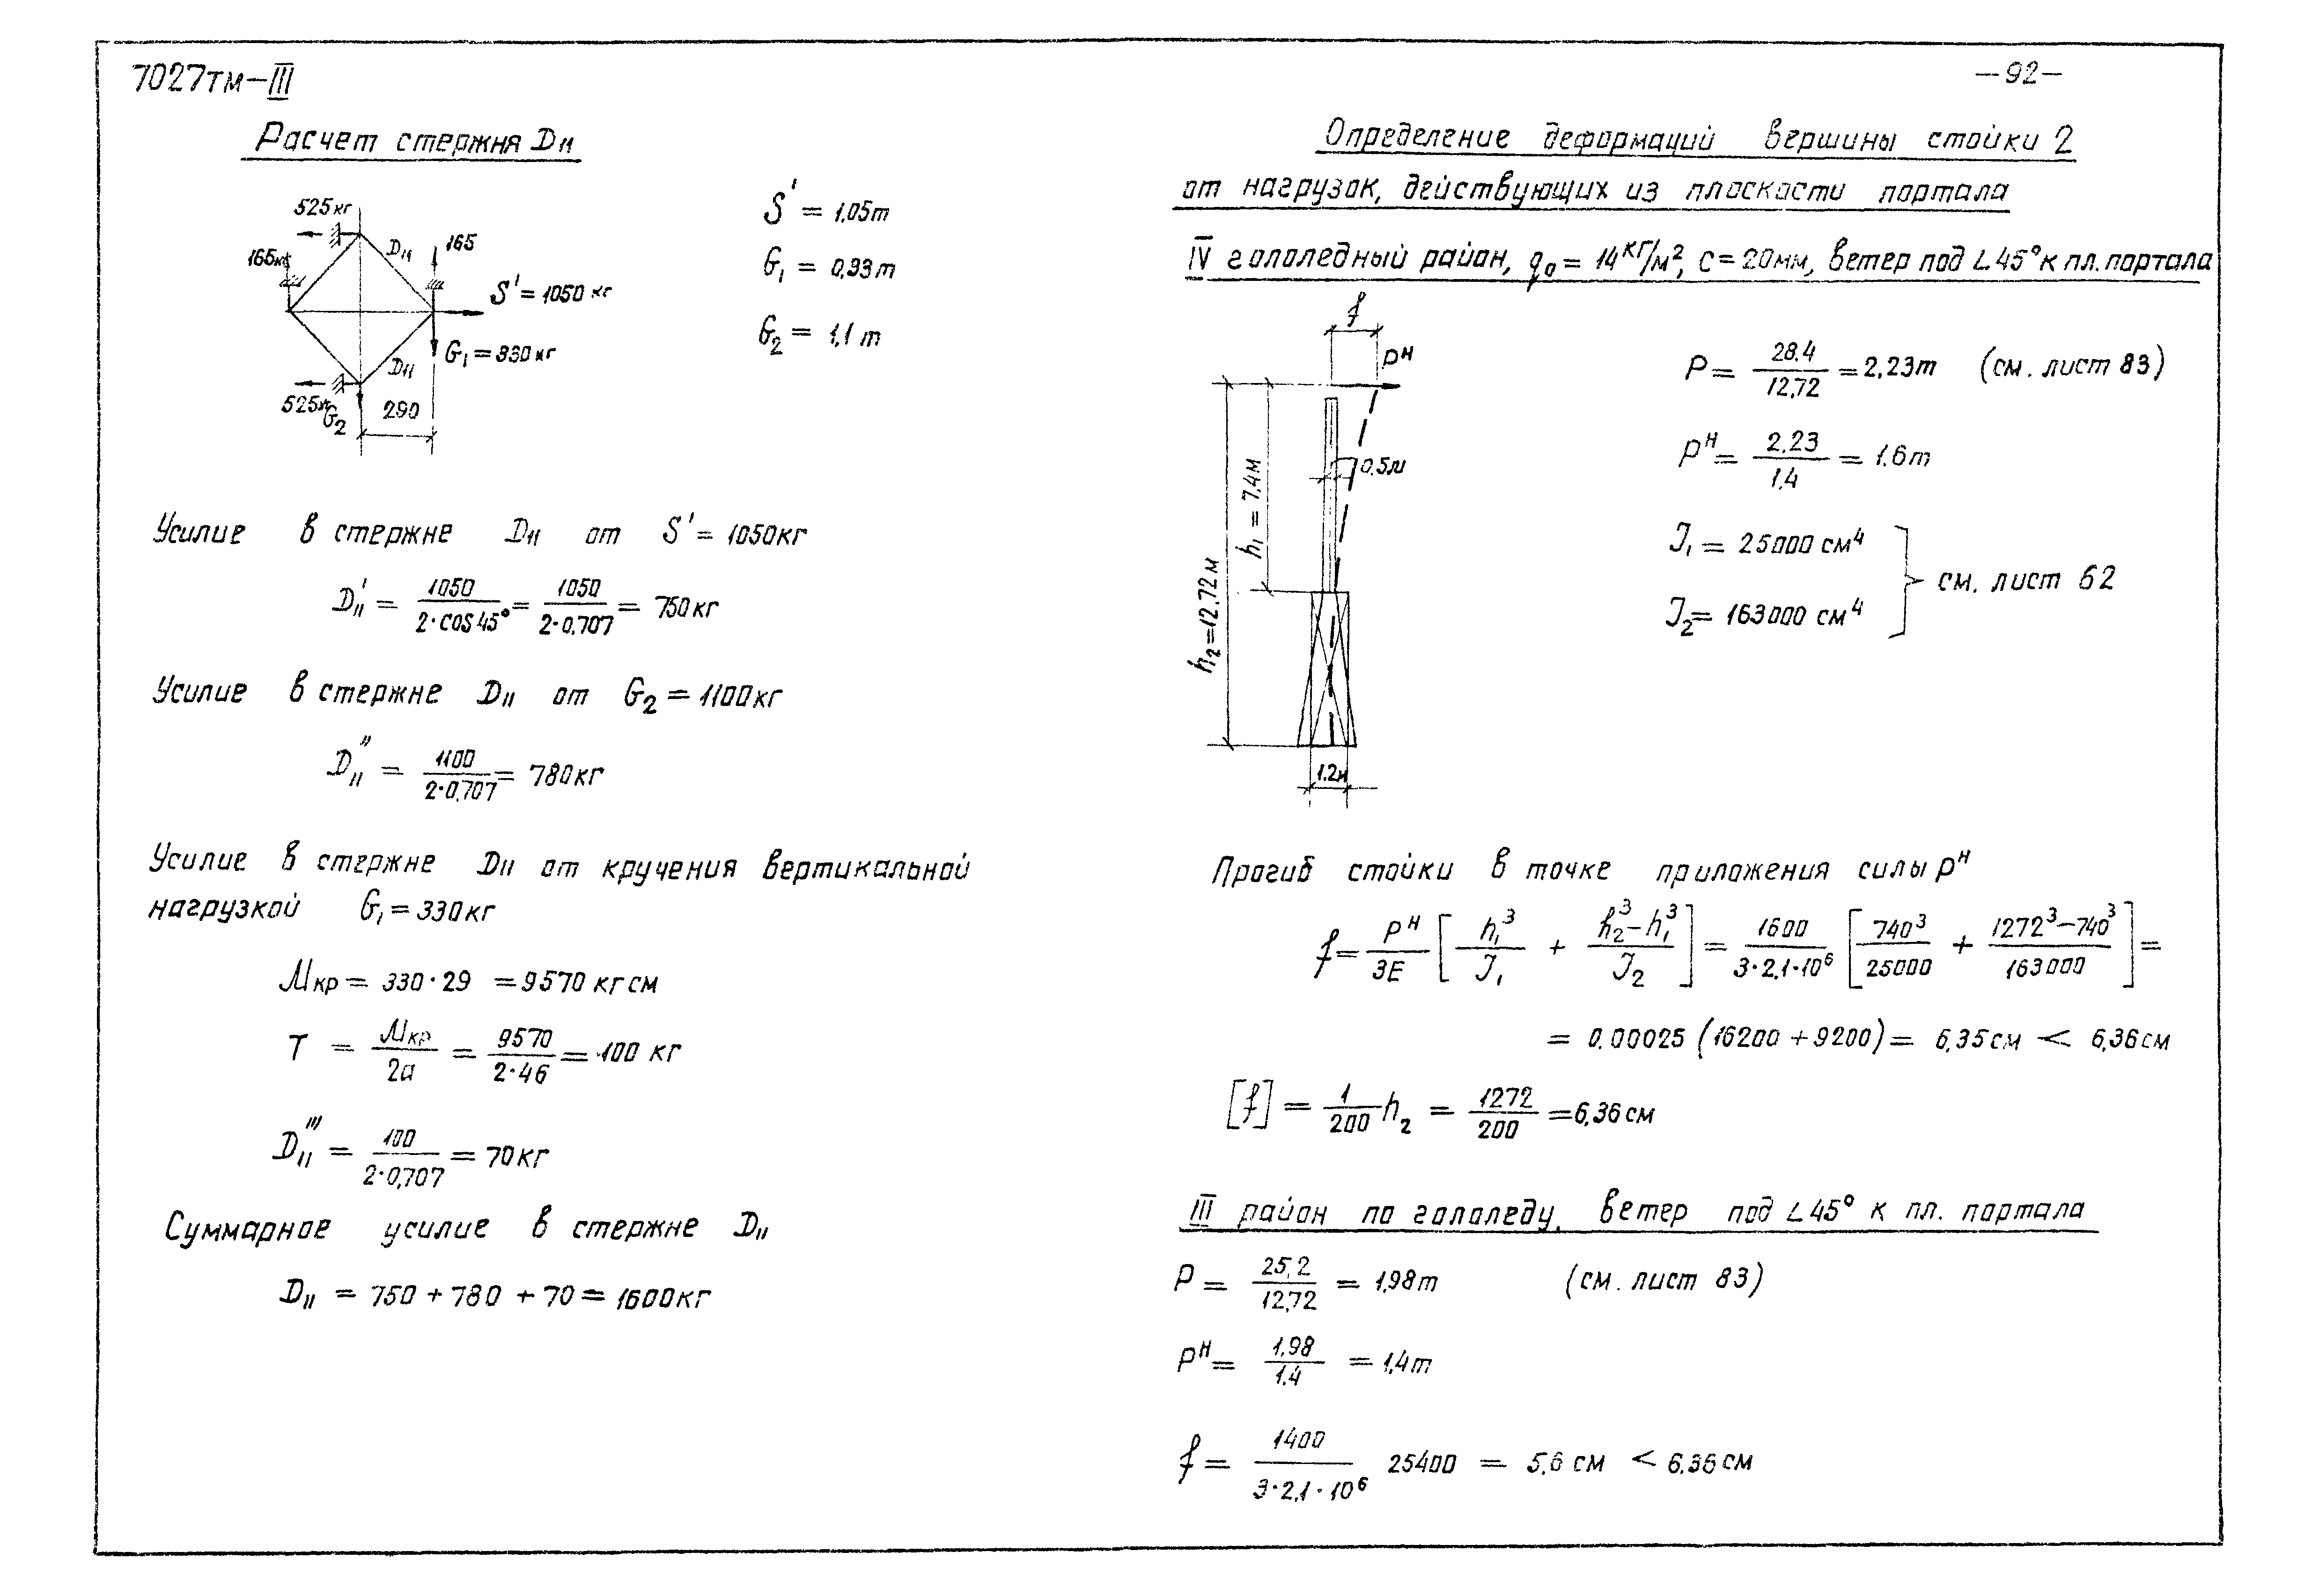 7027тм-III
-92-
Расчет стержня D11
525кг
165кг
D11
165
S' = 1050 кг
G1 = 330 кг
D11
525кг
G2
290
S' = 1,05т
G1 = 0,33т
G2 = 1,1т
Усилие в стержне D11 от S' = 1050кг
D11' = 1050 / 2·cos45° = 1050 / 2·0,707 = 750кг
Усилие в стержне D11 от G2 = 1100кг
D11'' = 1100 / 2·0,707 = 780кг
Усилие в стержне D11 от кручения вертикальной
нагрузкой G1 = 330кг
Mкр = 330·29 = 9570 кгсм
T = Mкр / 2a = 9570 / 2·46 = 100 кг
D11''' = 100 / 2·0,707 = 70кг
Суммарное усилие в стержне D11
D11 = 750 + 780 + 70 = 1600кг
Определение деформаций вершины стойки 2
от нагрузок, действующих из плоскости портала
IV гололедный район, q0 = 14кг/м², c = 20мм, ветер под ∠45° к пл. портала
f
Pн
h1 = 7,4м
0,5м
h2 = 12,72м
1,2м
P = 28.4 / 12,72 = 2,23т (см. лист 83)
Pн = 2,23 / 1.4 = 1.6т
J1 = 25000 см⁴
см. лист 62
J2 = 163000 см⁴
Прогиб стойки в точке приложения силы Pн
f = Pн / 3E [ h1³ / J1 + h2³ - h1³ / J2 ] = 1600 / 3·2,1·10⁶ [ 740³ / 25000 + 1272³ - 740³ / 163000 ] =
= 0.00025 (16200 + 9200) = 6,35см < 6,36см
[f] = 1 / 200 h2 = 1272 / 200 = 6,36см
III район по гололеду, ветер под ∠45° к пл. портала
P = 25,2 / 12,72 = 1,98т (см. лист 83)
Pн = 1,98 / 1.4 = 1,4т
f = 1400 / 3·2,1·10⁶ 25400 = 5,6 см < 6.36см